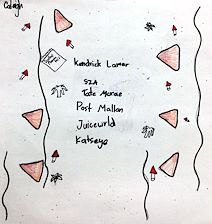 Kendrick Lamar
SZA
Tate Mcrae
Post Mallon
Juicewrld
Katseye